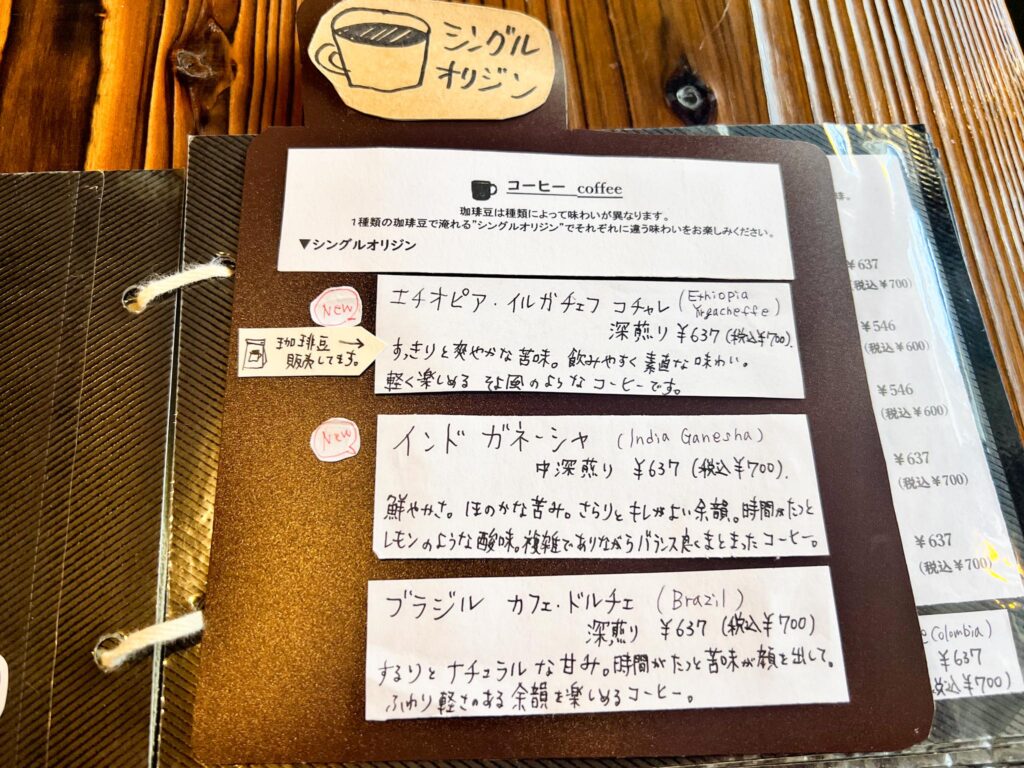 シングル
オリジン
コーヒー coffee
珈琲豆は種類によって味わいが異なります。
1種類の珈琲豆で淹れる"シングルオリジン"でそれぞれに違う味わいをお楽しみください。
▼シングルオリジン
New
エチオピア・イルガチェフ コチャレ (Ethiopia
Yrgacheffe)
深煎り ¥637 (税込¥700).
珈琲豆 →
販売してます。
すっきりと爽やかな苦味。飲みやすく素直な味わい。
軽く楽しめる そよ風のようなコーヒーです。
New
インド ガネーシャ (India Ganesha)
中深煎り ¥637 (税込¥700).
鮮やかさ。ほのかな苦み。さらりとキレがよい余韻。時間がたつと
レモンのような酸味。複雑でありながらバランス良くまとまったコーヒー。
ブラジル カフェ・ドルチェ (Brazil)
深煎り ¥637 (税込¥700)
するりとナチュラルな甘み。時間がたつと苦味が顔を出して。
ふわり軽さのある余韻を楽しめるコーヒー。
¥637
(税込¥700)
¥546
(税込¥600)
¥546
(税込¥600)
¥637
(税込¥700)
¥637
(税込¥700)
Colombia)
¥637
税込¥700)